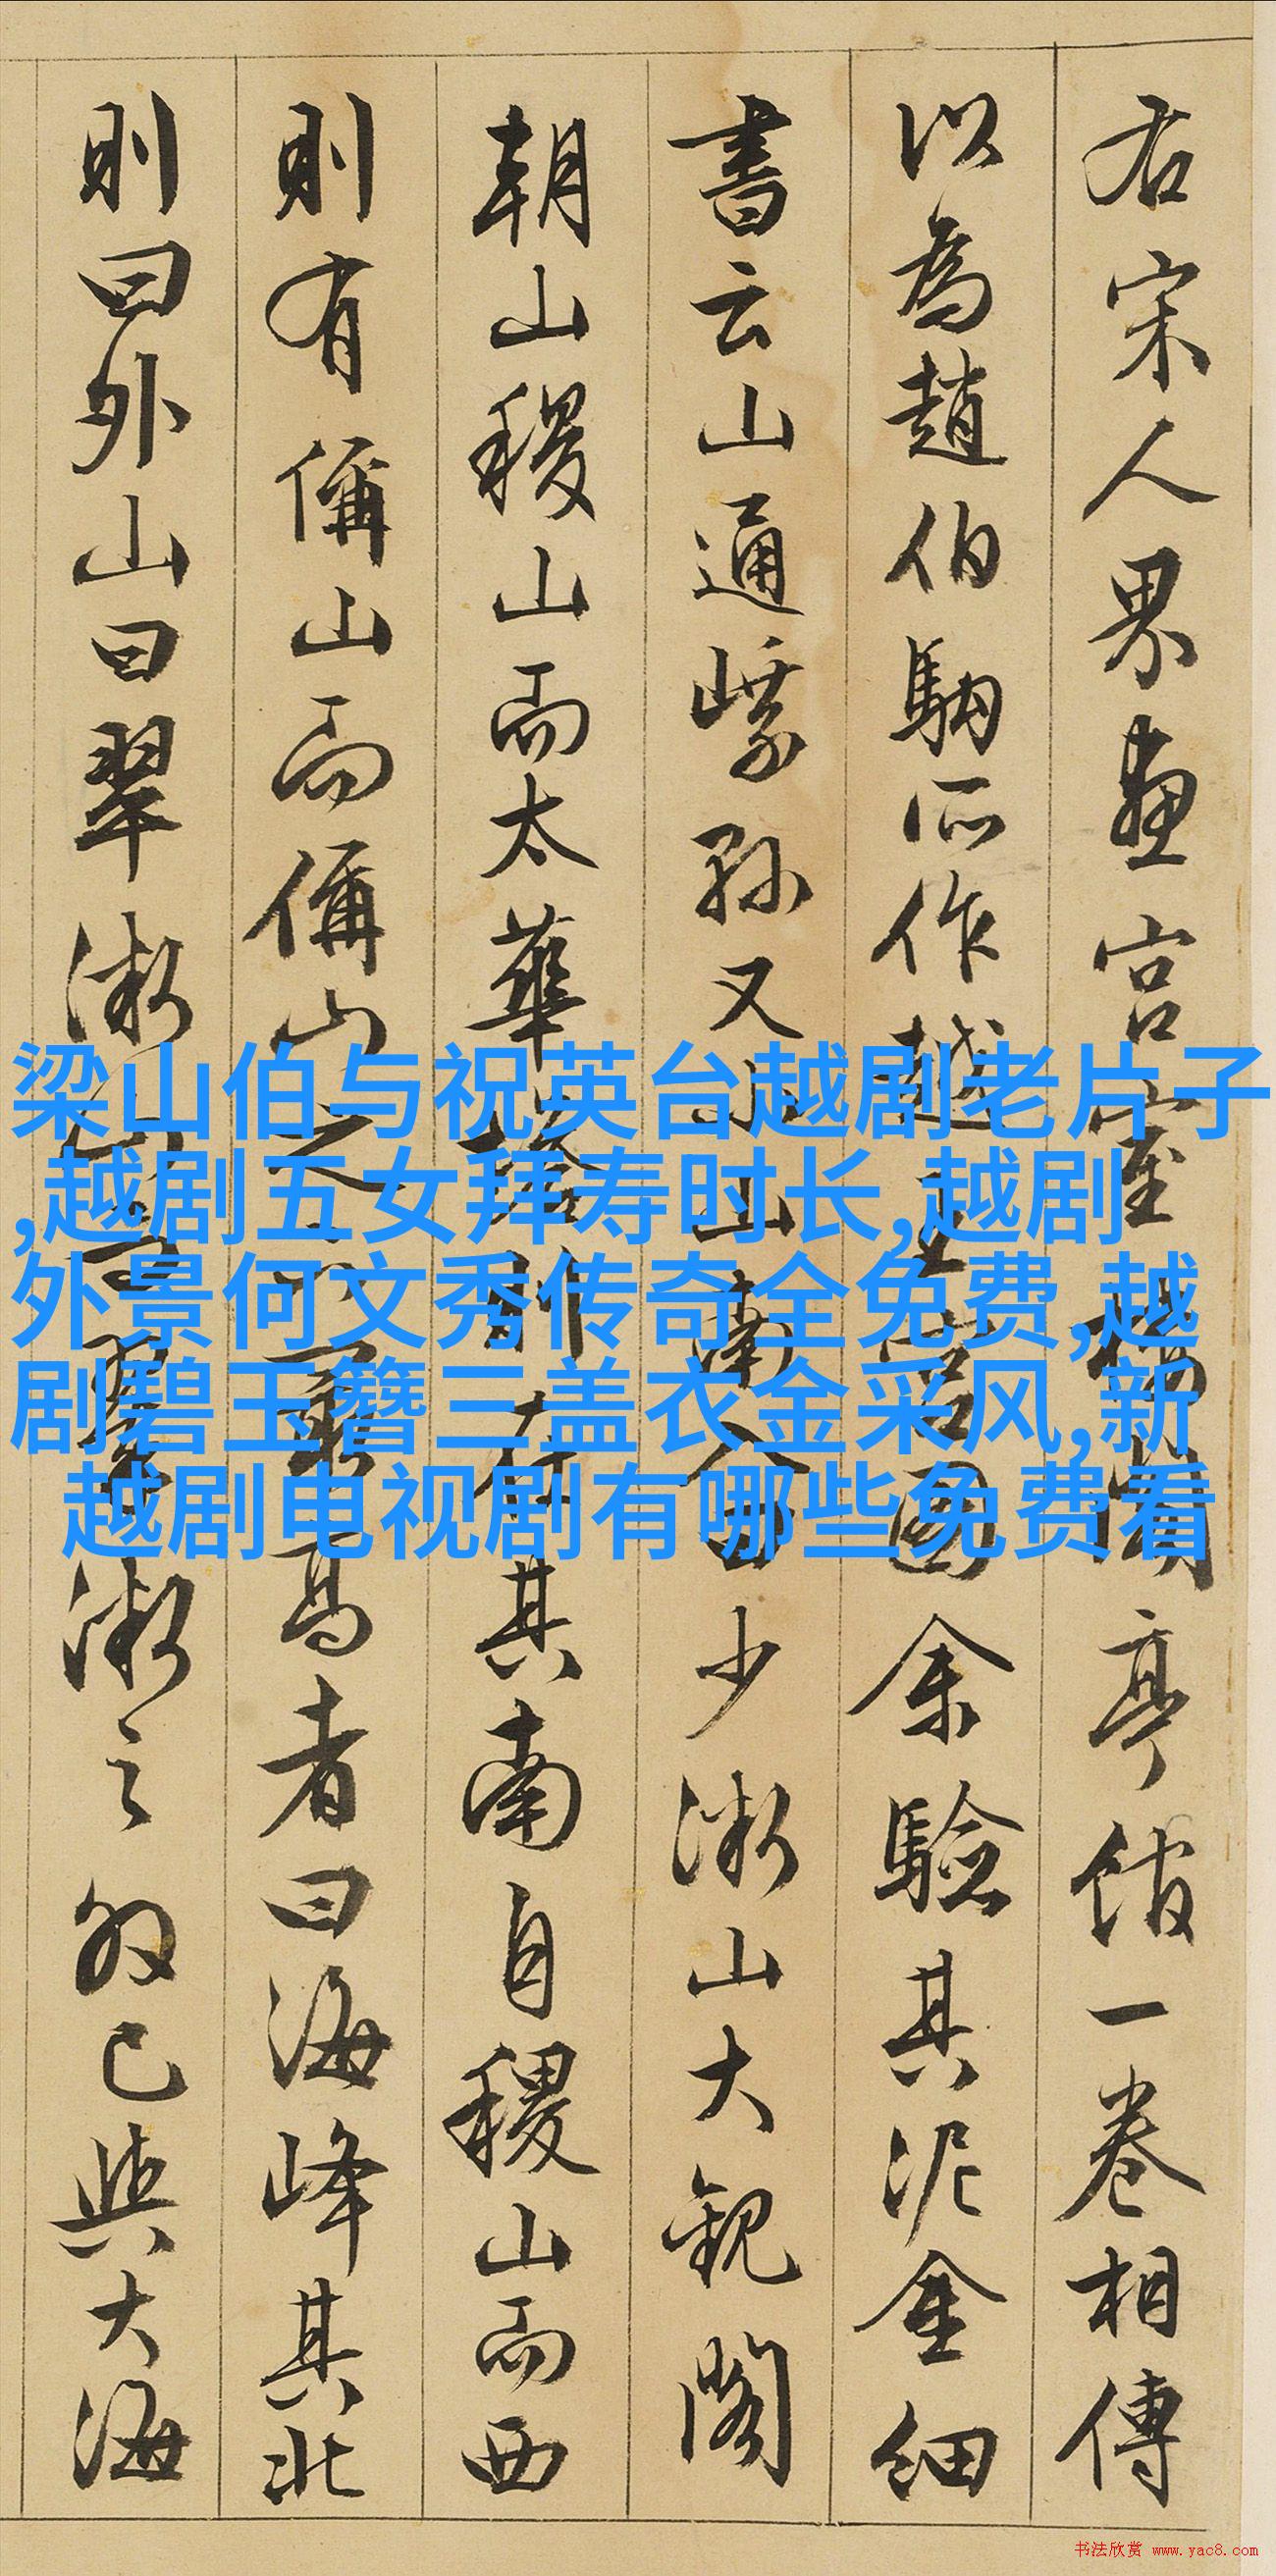 右宋人界畫宮室樓閣亭館一卷相傳
以為趙伯駒所作越王宮圖余驗其泥金細
書云山通孫又小山南曰少山大觀閣
朝山稷山而太華在其南自稷山而西
則有偁山而偁山之最高者曰海峰其北
則曰外山曰翠之外已與大海
梁山伯与祝英台越剧老片子
,越剧五女拜寿时长,越剧
外景何文秀传奇全免费,越
剧碧玉簪三盖衣金采风,新
越剧电视剧有哪些免费看
书法欣赏 www.yac8.com